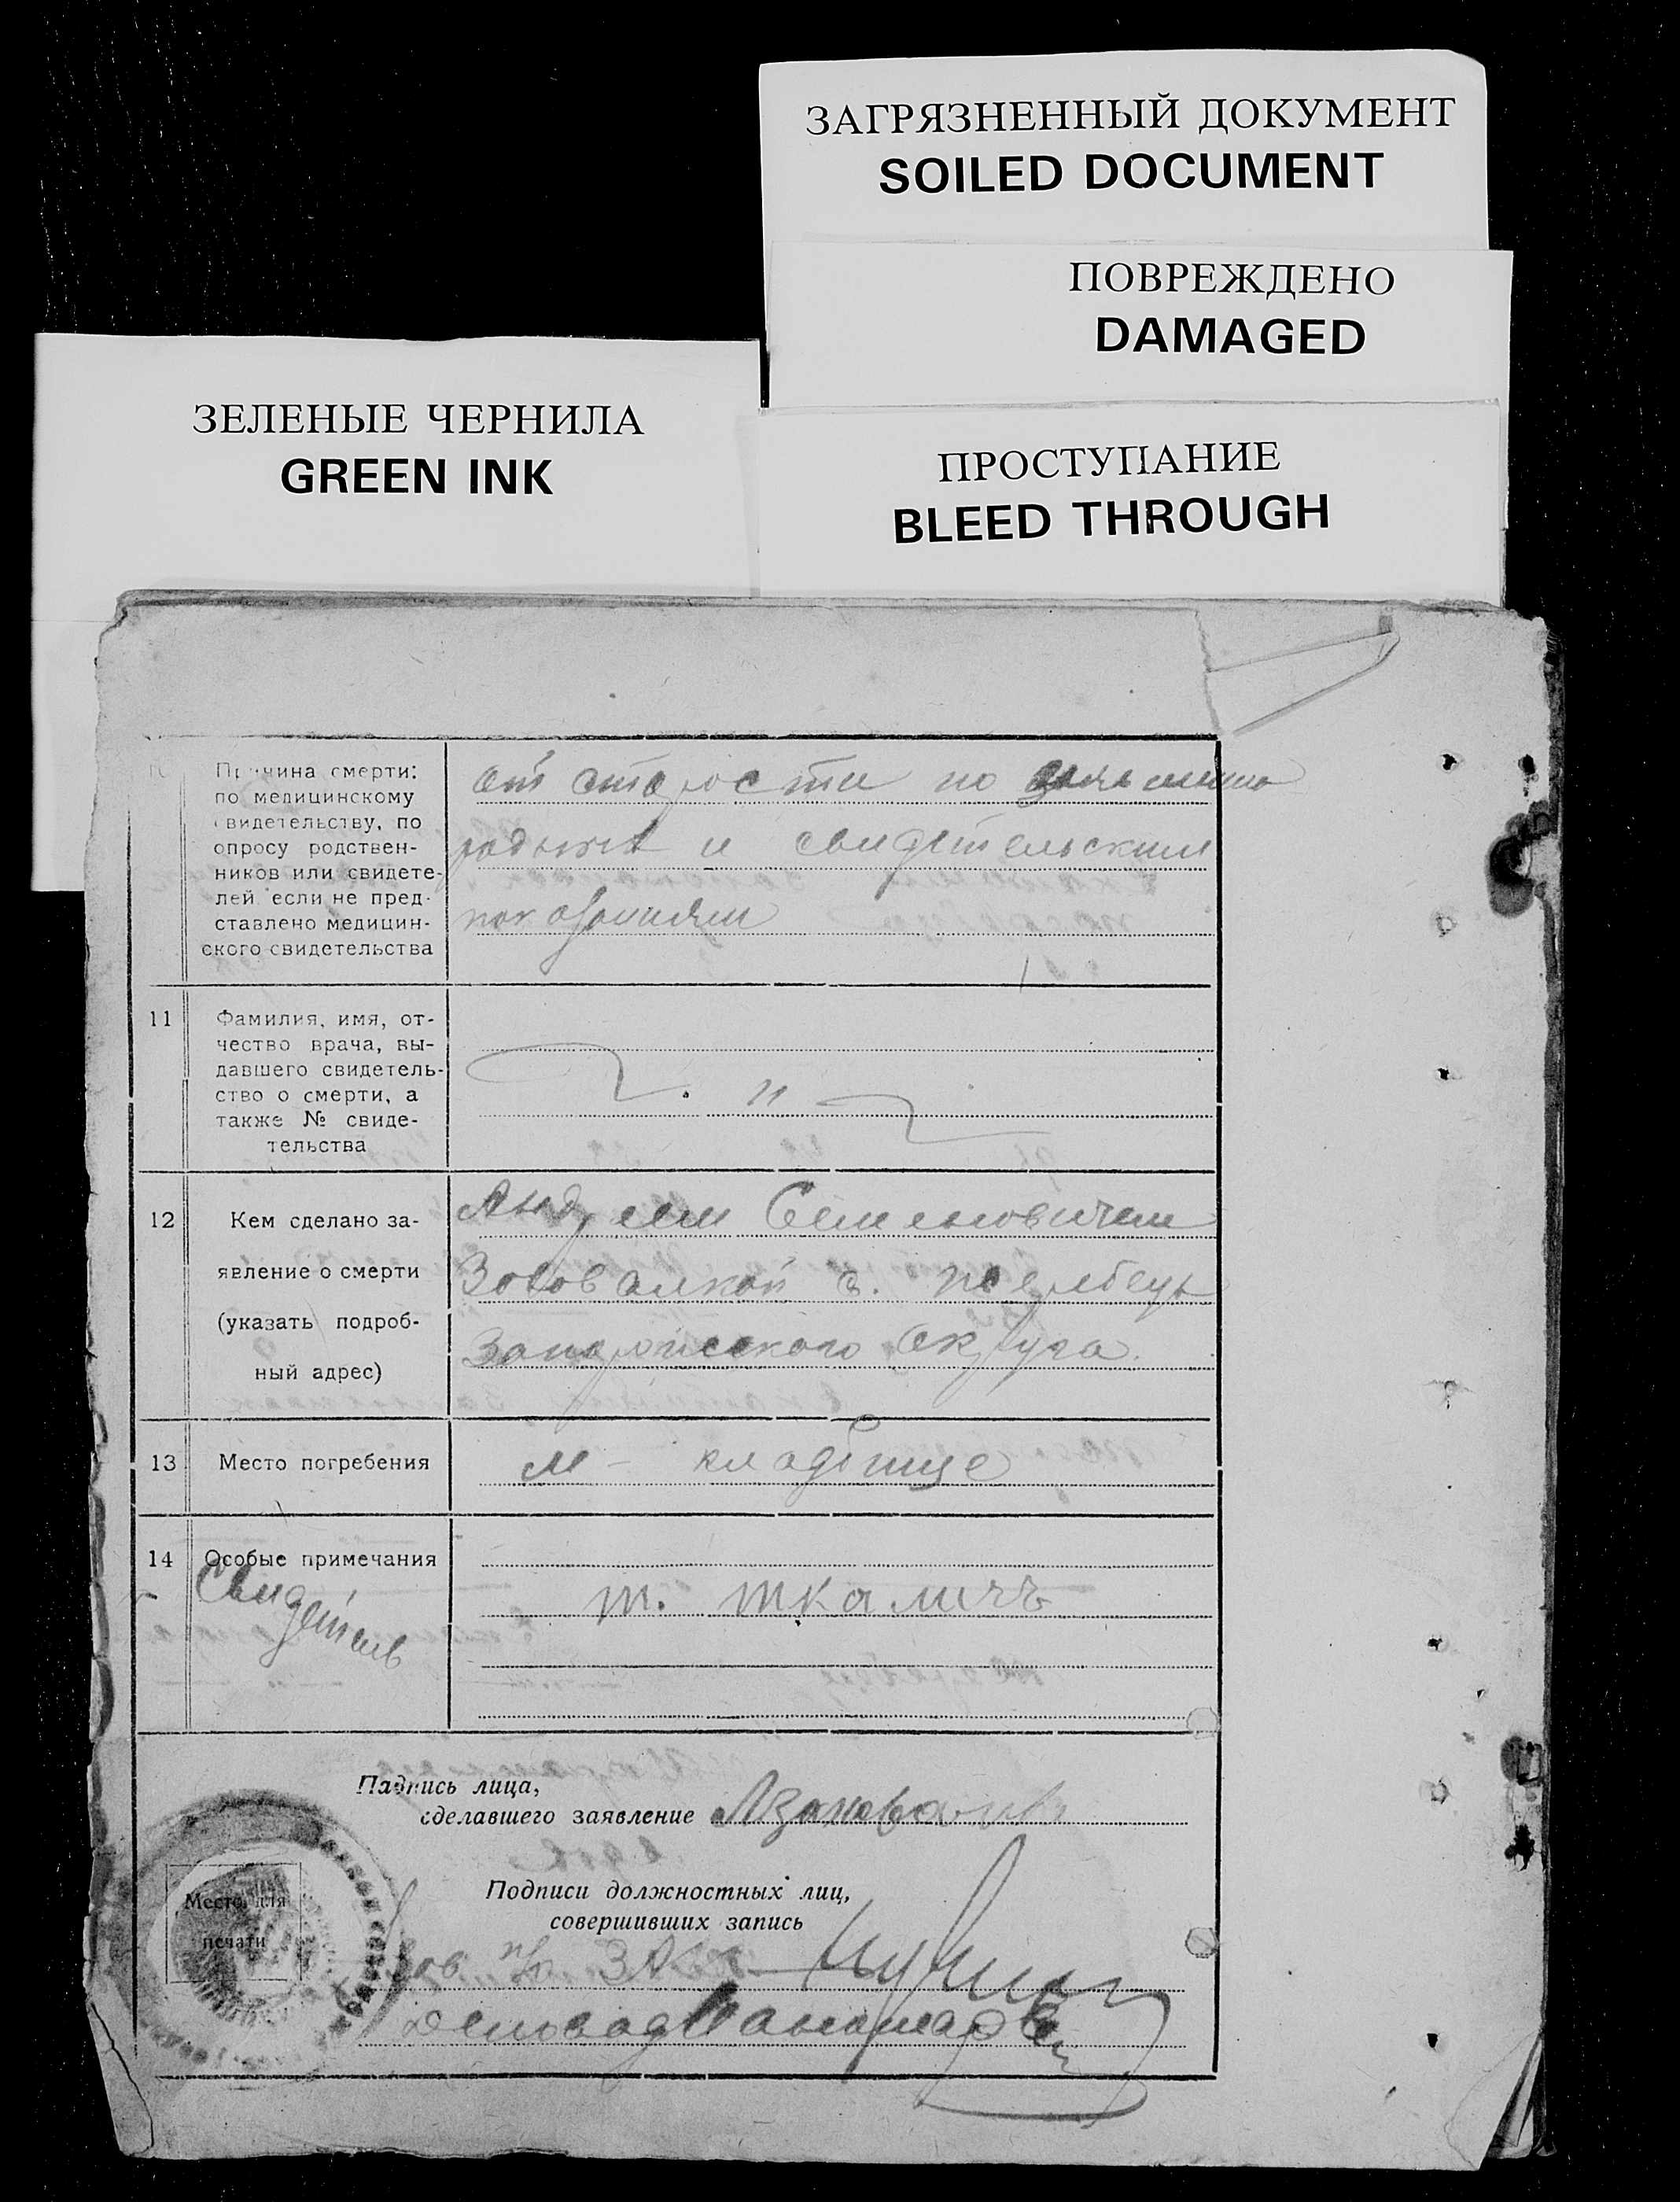 ЗАГРЯЗНЕННЫЙ ДОКУМЕНТ
SOILED DOCUMENT
ПОВРЕЖДЕНО
DAMAGED
ЗЕЛЕНЫЕ ЧЕРНИЛА
GREEN INK
ПРОСТУПАНИЕ
BLEED THROUGH
Причина смерти:
по медицинскому
свидетельству, по
опросу родствен-
ников или свидете-
лей если не пред-
ставлено медицин-
ского свидетельства
от старости по
и свидетельским
показаниям
11
Фамилия, имя, от-
чество врача, вы-
давшего свидетель-
ство о смерти, а
также № свиде-
тельства
12
Кем сделано за-
явление о смерти
(указать подроб-
ный адрес)
Андреем Семеновичем
с.
Запорожского Округа.
13
Место погребения
м - кладбище
14
Особые примечания
Свидетель
т. ткаличь
Падпись лица,
сделавшего заявление
Место для
печати
Подписи должностных лиц,
совершивших запись
Зав п/о ЗАГс
Деловод